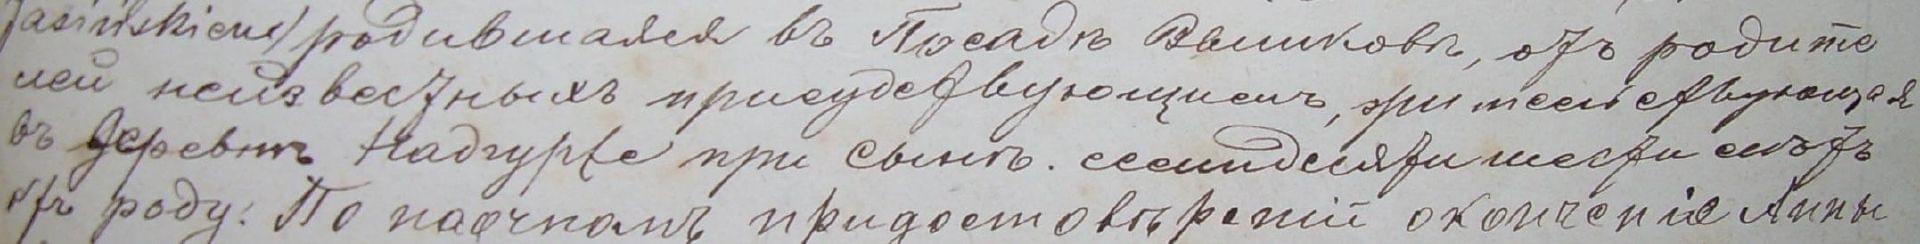 Jasińskiemi/ родившаяся въ Посадѣ Вышковѣ, отъ родите
лей неизвестныхъ присудствующимъ, жительствующая
въ деревнѣ Надгурже при сынѣ. семидесяти шести лѣтъ
отъ роду. По наочномъ придостовѣреніи окончения Анны